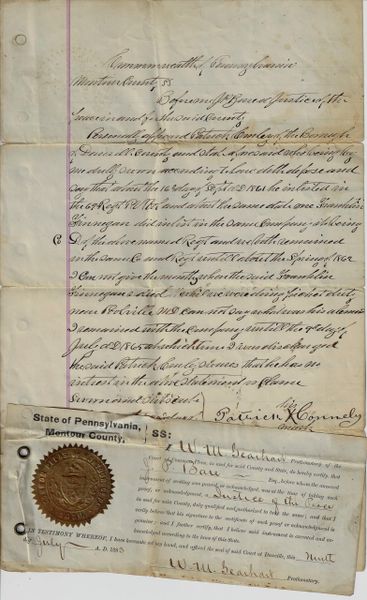 Commonwealth of Pennsylvania
Montour County SS
Before me J P Bare a Justice of the
Peace in and for the said County
Personally appeared Patrick Conley of the Borough
of Danville County and State aforesaid who being by
me duly sworn according to law doth depose and
say that about the 16 day of Sept AD 1861 he inlisted in
the 6 Regt and about the same date one Franklin
Finnegan did inlist in the same Company it being
Co D of the above named Regt and we both remained
in the same Co and Regt untill about the Spring of 1862
I Can not give the month when the said Franklin
Finnegan died while we were doing picket duty
near
I remained with the Company untill the day of
July AD 1865 at which time I was discharged
the said Patrick Conly swears that he has no
interest in the above Statement or Claim
Sworn and Subscribed
his
Patrick X Connely
mark
State of Pennsylvania,
Montour County,
SS:
I, W. M. Gearhart Prothonotary of the
Court of Common Pleas, in and for said County and State, do hereby certify, that
J. P. Bare Esq., before whom the annexed
instrument of writing was proved or acknowledged, was at the time of taking such
proof, or acknowledgment, a Justice of the Peace
in and for said County, duly qualified and authorized to take the same; and that I
verily believe that his signature to the certificate of such proof or acknowledgment is
genuine; and I further certify, that I believe said instrument is executed and ac-
knowledged according to the laws of this State.
IN TESTIMONY WHEREOF, I have hereunto set my hand, and affixed the seal of said Court at Danville, this Ninth
day of July A. D. 1883
W. M. Gearhart
Prothonotary.